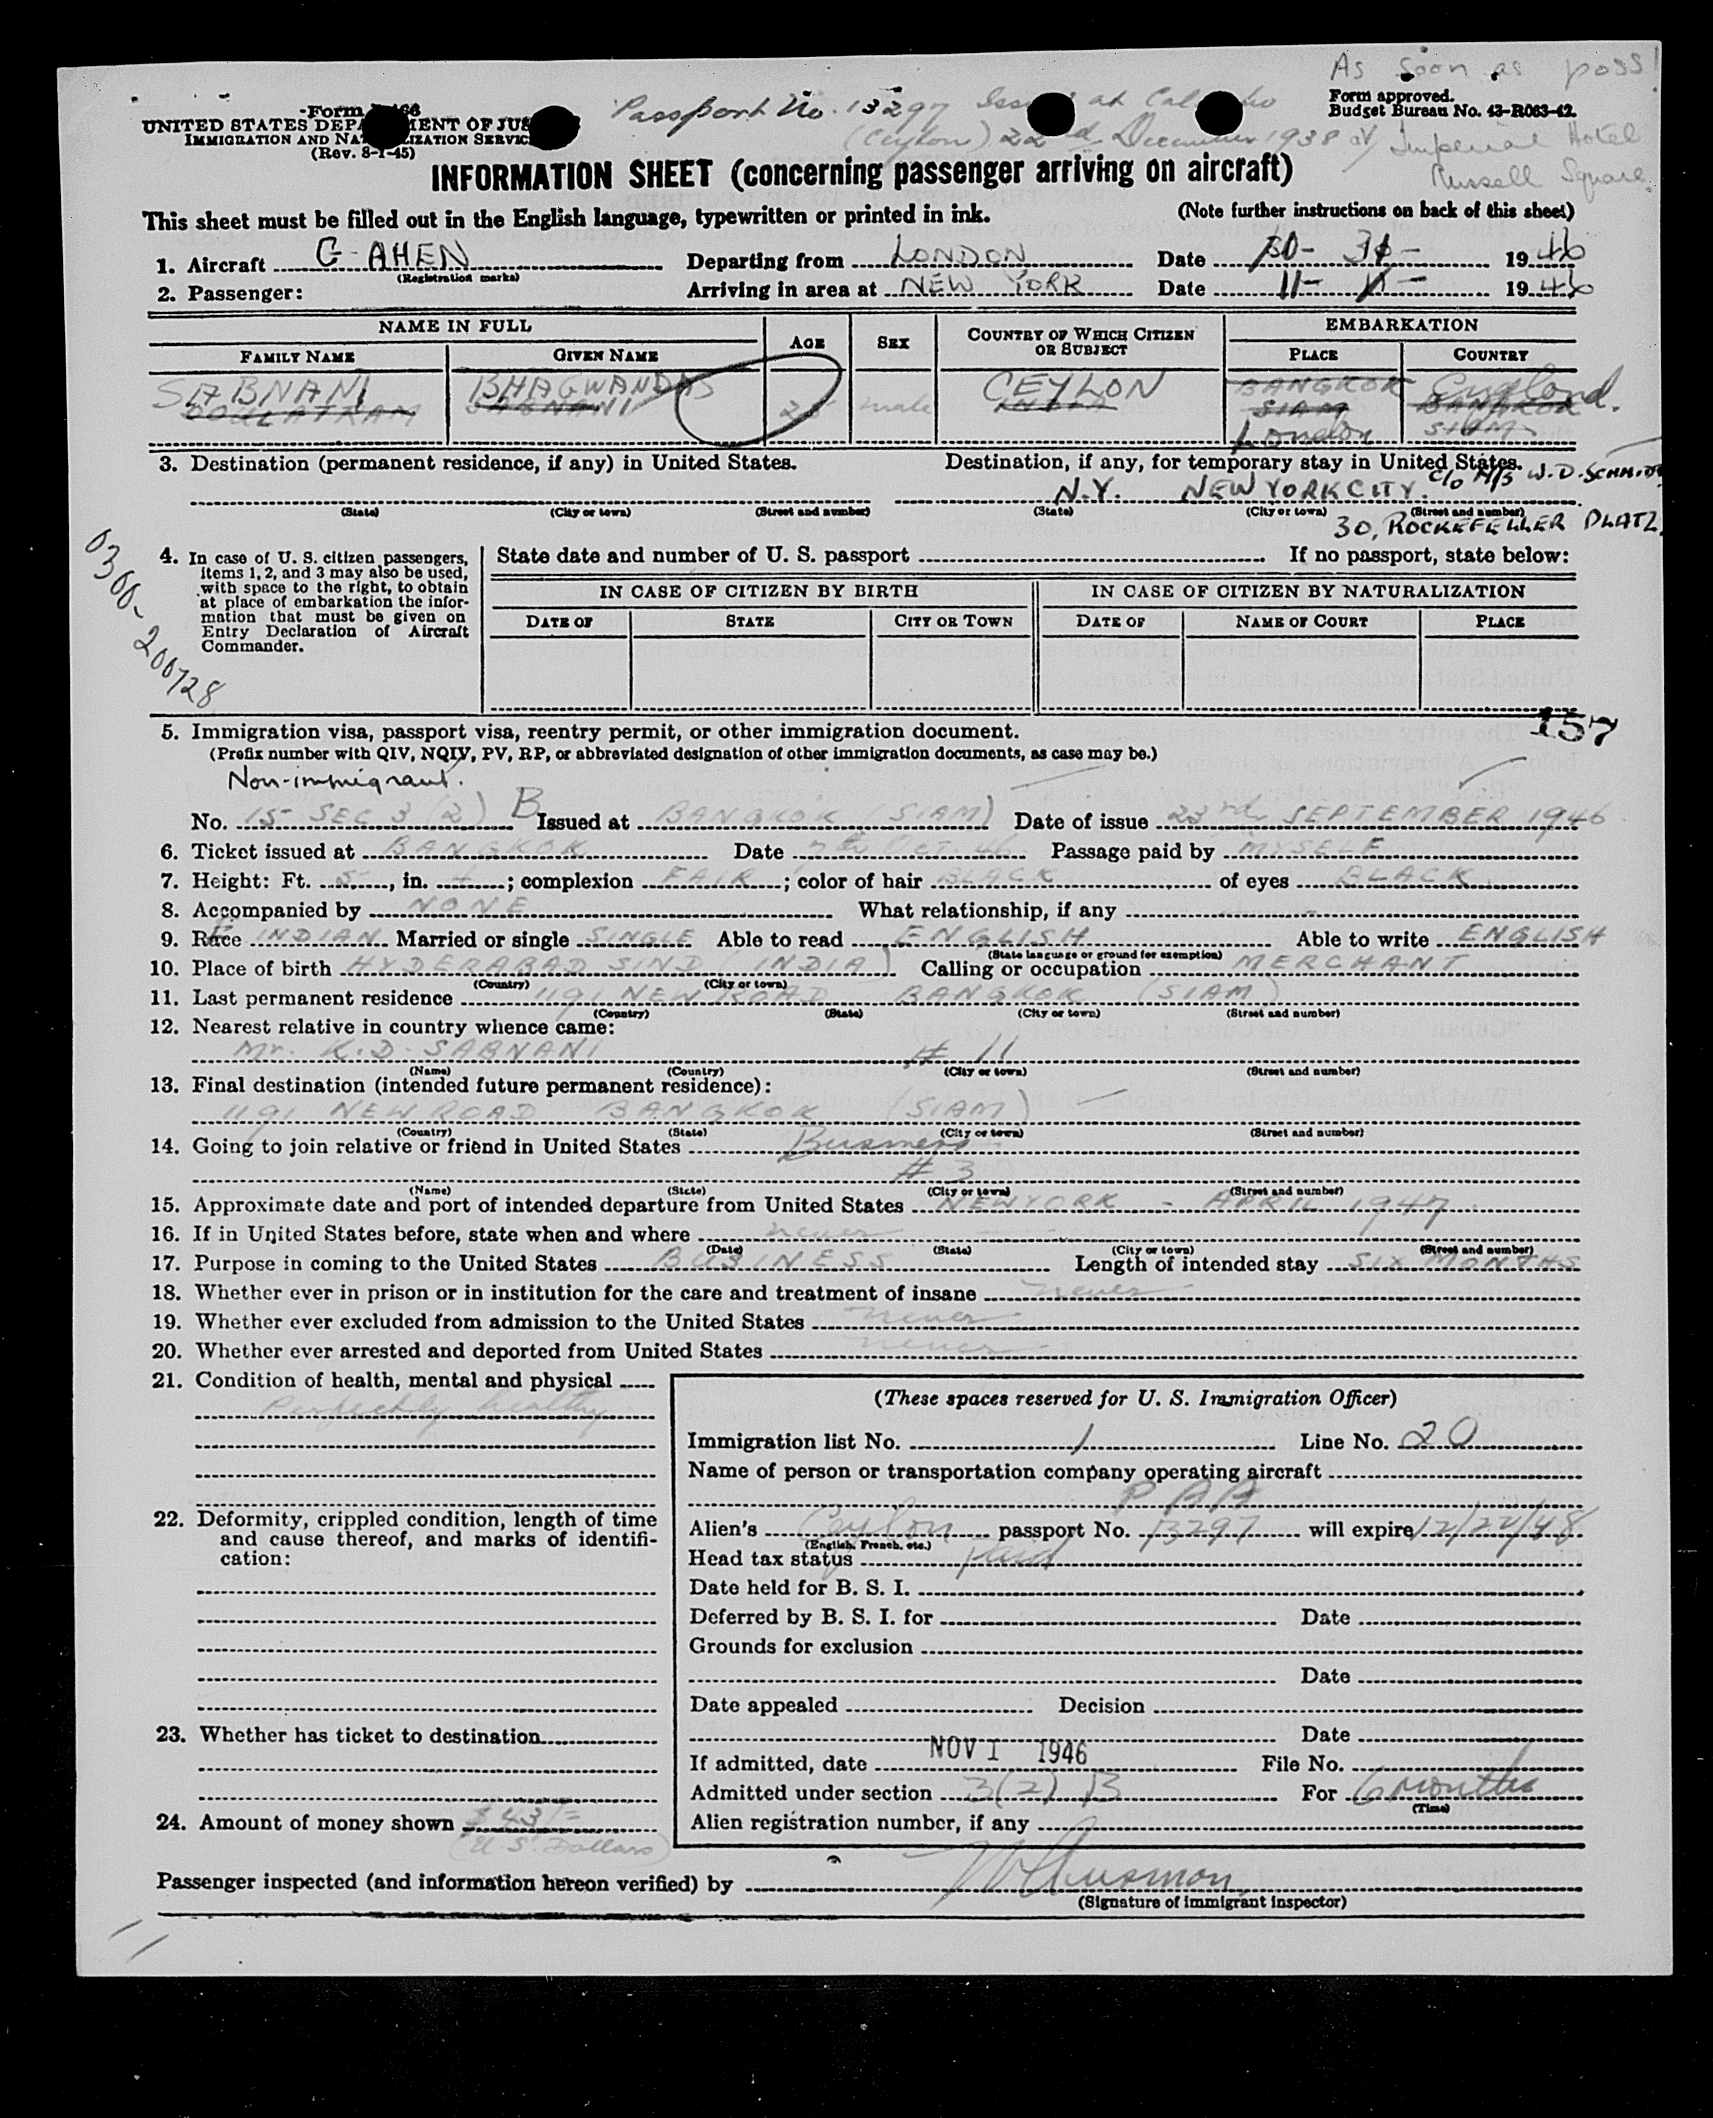 As soon as poss!
Form
Passport No. 13297 Issued at
Form approved.
Budget Bureau No. 43-R063-42.
UNITED STATES DEPARTMENT OF JUS
IMMIGRATION AND NATURALIZATION SERVIC
(Rev. 8-1-45)
(Ceylon) 22nd December 1938 at Imperial Hotel
Russell Square
INFORMATION SHEET (concerning passenger arriving on aircraft)
This sheet must be filled out in the English language, typewritten or printed in ink.
(Note further instructions on back of this sheet)
1. Aircraft G-AHEN Departing from LONDON Date 10-31- 1946
(Registration marks)
2. Passenger: Arriving in area at NEW YORK Date 11- 1- 1946
NAME IN FULL
FAMILY NAME GIVEN NAME AGE SEX COUNTRY OF WHICH CITIZEN OR SUBJECT EMBARKATION
PLACE COUNTRY
SABNANI BHAGWANDAS CEYLON BANGKOK England.
DOULATRAM SABNANI 25 male INDIA SIAM BANGKOK
London SIAM
3. Destination (permanent residence, if any) in United States. Destination, if any, for temporary stay in United States.
c/o M/S W.D. SCHMIDT
N.Y. NEW YORK CITY.
(State) (City or town) (Street and number) (State) (City or town) (Street and number)
30, ROCKEFELLER PLATZ.
0300-200728
4. In case of U. S. citizen passengers, items 1, 2, and 3 may also be used, with space to the right, to obtain at place of embarkation the information that must be given on Entry Declaration of Aircraft Commander.
State date and number of U. S. passport If no passport, state below:
IN CASE OF CITIZEN BY BIRTH IN CASE OF CITIZEN BY NATURALIZATION
DATE OF STATE CITY OR TOWN DATE OF NAME OF COURT PLACE
157
5. Immigration visa, passport visa, reentry permit, or other immigration document.
(Prefix number with QIV, NQIV, PV, RP, or abbreviated designation of other immigration documents, as case may be.)
Non-immigrant.
No. 15 SEC 3 (2) B Issued at BANGKOK (SIAM) Date of issue 23rd SEPTEMBER 1946
6. Ticket issued at BANGKOK Date 7th OCT. 46 Passage paid by MYSELF
7. Height: Ft. 5, in. ; complexion FAIR; color of hair BLACK of eyes BLACK
8. Accompanied by NONE What relationship, if any -
9. Race E INDIAN Married or single SINGLE Able to read ENGLISH Able to write ENGLISH
(State language or ground for exemption)
10. Place of birth HYDERABAD SIND (INDIA) Calling or occupation MERCHANT
(Country) (City or town)
11. Last permanent residence 1191 NEW ROAD BANGKOK (SIAM)
(Country) (State) (City or town) (Street and number)
12. Nearest relative in country whence came:
Mr. K.D. SABNANI # 11
(Name) (Country) (City or town) (Street and number)
13. Final destination (intended future permanent residence):
1191 NEW ROAD BANGKOK (SIAM)
(Country) (State) (City or town) (Street and number)
14. Going to join relative or friend in United States Business
# 3
(Name) (State) (City or town) (Street and number)
15. Approximate date and port of intended departure from United States NEW YORK - APRIL 1947
16. If in United States before, state when and where never
(Date) (State) (City or town) (Street and number)
17. Purpose in coming to the United States BUSINESS Length of intended stay SIX MONTHS
18. Whether ever in prison or in institution for the care and treatment of insane never
19. Whether ever excluded from admission to the United States never
20. Whether ever arrested and deported from United States never
21. Condition of health, mental and physical
Perfectly healthy
22. Deformity, crippled condition, length of time and cause thereof, and marks of identification:
23. Whether has ticket to destination
24. Amount of money shown $ 43/=
(U S Dollars)
(These spaces reserved for U. S. Immigration Officer)
Immigration list No. 1 Line No. 20
Name of person or transportation company operating aircraft
PAA
Alien's Ceylon passport No. 13297 will expire 12/22/48
(English, French, etc.)
Head tax status paid
Date held for B. S. I.
Deferred by B. S. I. for Date
Grounds for exclusion
Date
Date appealed Decision
Date
If admitted, date NOV 1 1946 File No.
Admitted under section 3(2) B For 6 months
(Time)
Alien registration number, if any
Passenger inspected (and information hereon verified) by
(Signature of immigrant inspector)